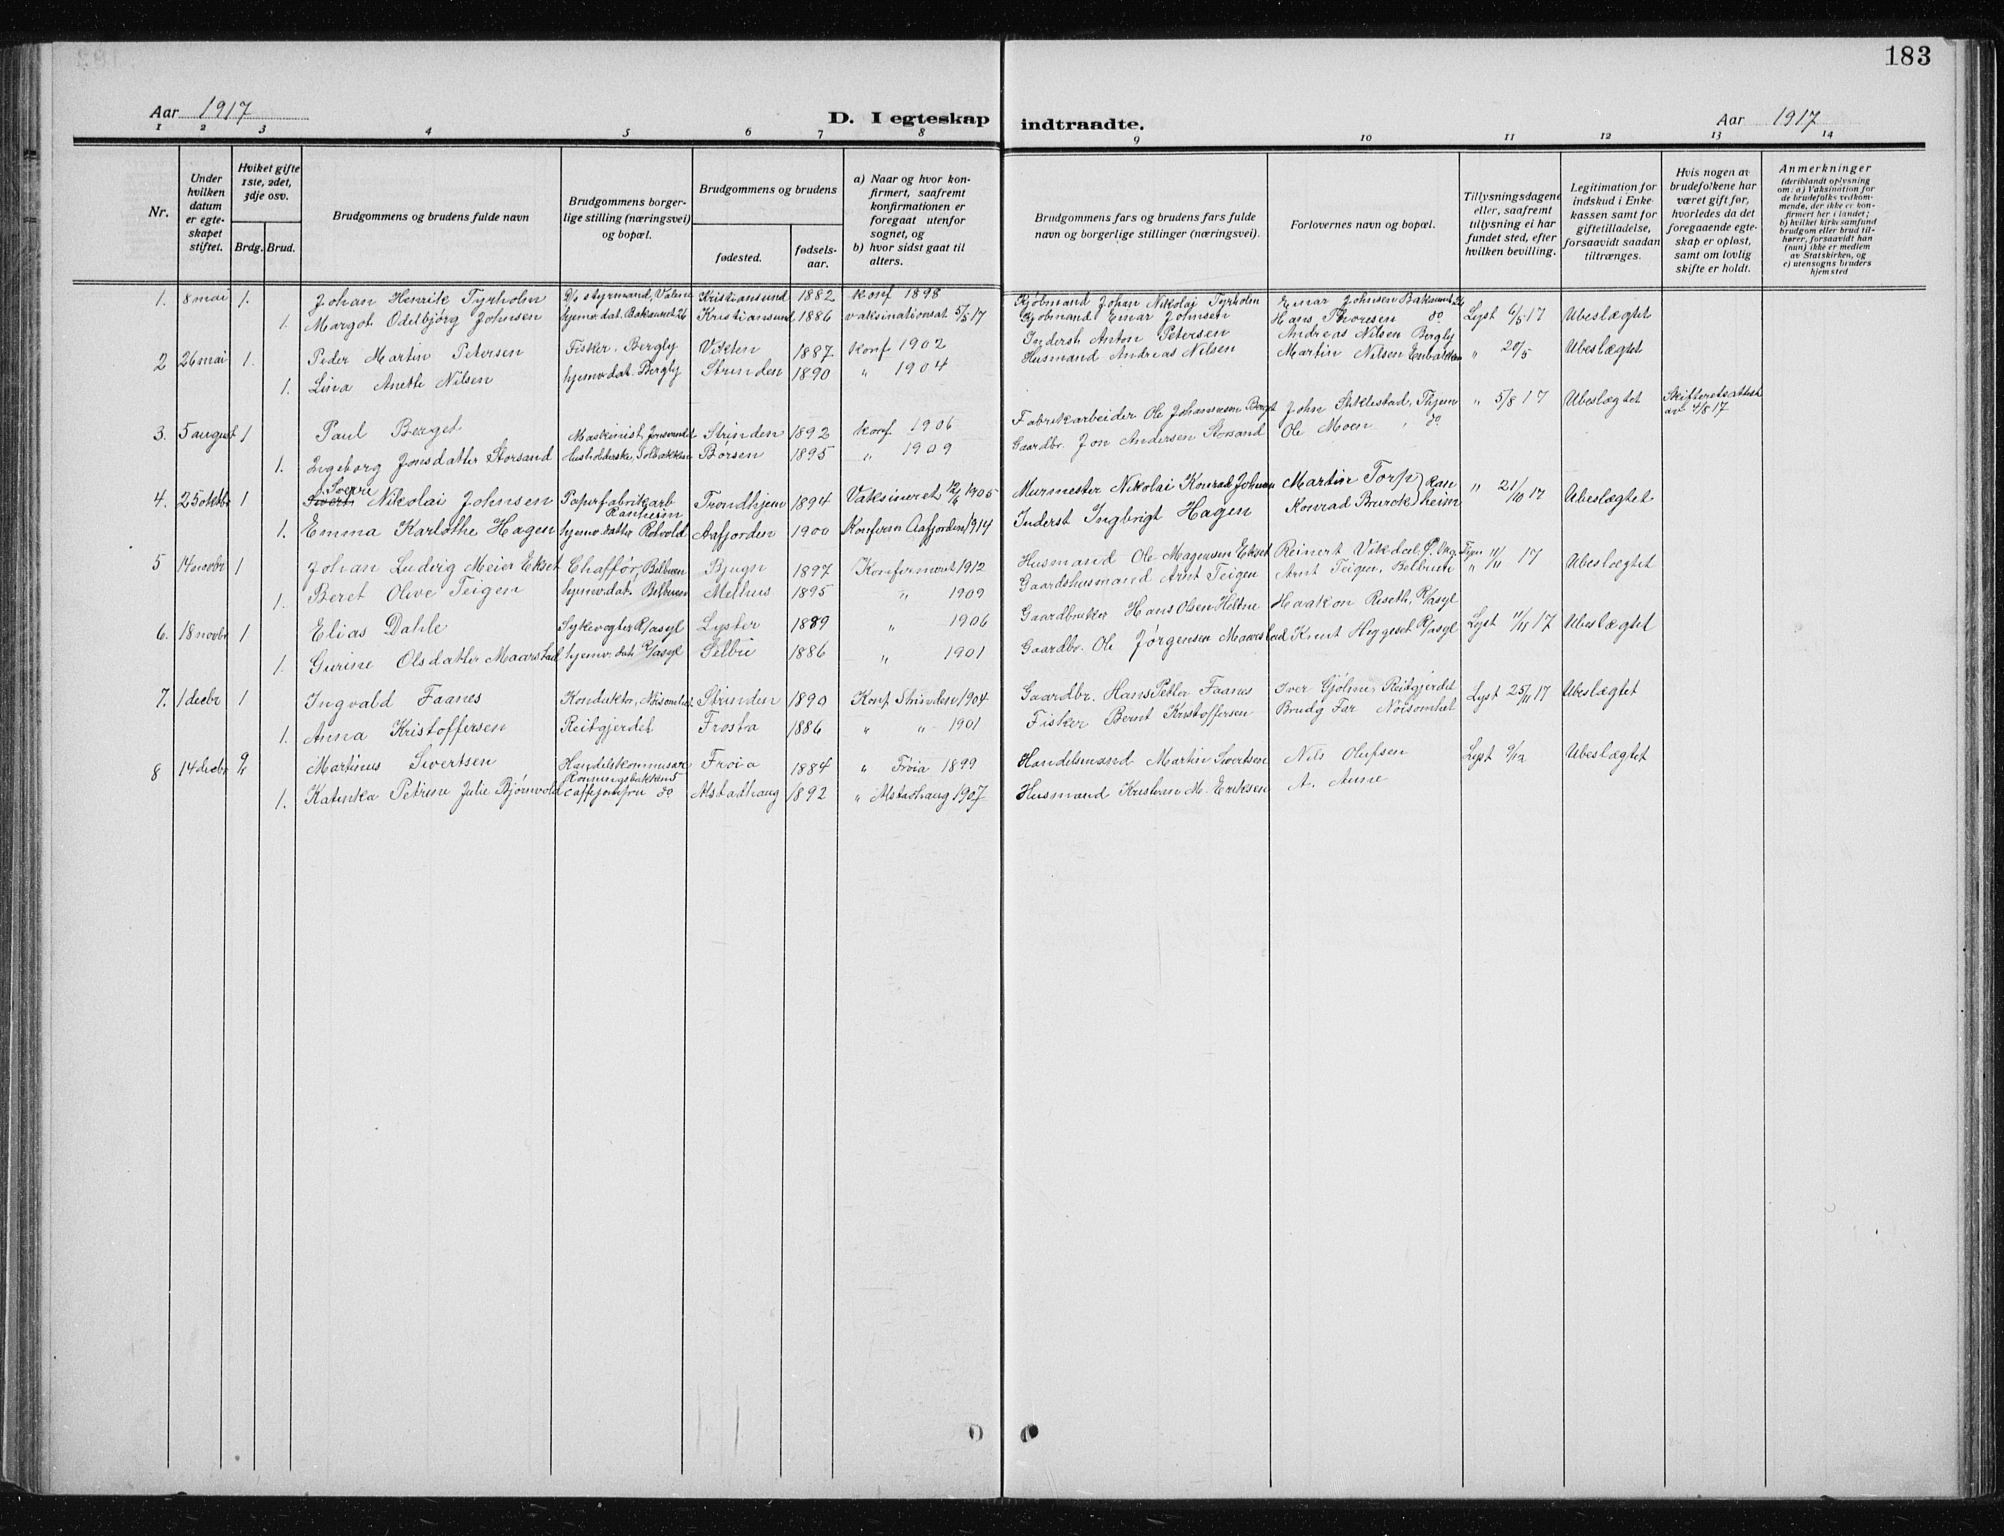 183
Aar 1917 D. I egteskap indtraadte. Aar 1917
1 2 3 4 5 6 7 8 9 10 11 12 13 14
Nr.
Under hvilken datum er egteskapet stiftet.
Hviket gifte 1ste, 2det, 3dje osv.
Brdg. Brud.
Brudgommens og brudens fulde navn
Brudgommens borgerlige stilling (næringsvei) og bopæl.
Brudgommens og brudens
fødested. fødselsaar.
a) Naar og hvor konfirmert, saafremt konfirmationen er foregaat utenfor sognet, og
b) hvor sidst gaat til alters.
Brudgommens fars og brudens fars fulde navn og borgerlige stillinger (næringsvei).
Forlovernes navn og bopæl.
Tillysningsdagene eller, saafremt tillysning ei har fundet sted, efter hvilken bevilling.
Legitimation for indskud i Enkekassen samt for giftetilladelse, forsaavidt saadan tiltrænges.
Hvis nogen av brudefolkene har været gift før, hvorledes da det foregaaende egteskap er opløst, samt om lovlig skifte er holdt.
Anmerkninger
(deriblandt oplysning om: a) Vaksination for de brudefolks vedkommende, der ikke er konfirmert her i landet; b) hvilket kirkesamfund brudgom eller brud tilhører, forsaavidt han (hun) ikke er medlem av Statskirken, og c) utensogns bruders hjemsted
1. 8 mai 1. Johan Henrik Tyrholm styrmand, Kristiansund 1882 konf 1898 Kjøbmand Johan Nikolai Tyrholm Einar Johnsen Baksundt 26
1. Margot Odelbjørg Johnsen hjemv. dat. Baksundt 26 Kristiansund 1886 vaksinationsat 5/5 17 Kjøbmand Einar Johnsen Hans Thoresen do Lyst 6/5 17 Ubeslægtet
2 26 mai 1. Peder Martin Petersen Fisker. Bergly Vikten 1887 konf 1902 Inderst Anton Petersen Andreas Nilsen Bergly
1. Lina Anette Nilsen hjemv. dat. Bergly Strinden 1890 " 1904 Husmand Andreas Nilsen Martin Nilsen " 20/5 Ubeslægtet
3. 5 august 1 Paul Berget Maskinist, Strinden 1892 konf 1906 Fabrikarbeider Ole Johannesen Berget John Stiklestad, Thjem " 5/8 17 Ubeslægtet Skifteretsattest av 4/8 17
1. Ingeborg Jonsdatter Storsand Husholderske, Solbakken Børsen 1895 " 1909 Gaardbr. Jon Andersen Storsand Ole Moen " do
4. 25 oktbr 1 Sverre Nikolai Johnsen Papirfabrikarb Ranheim Trondhjem 1894 Vaksineret 12/6 1905 Murmester Nikolai Konrad Johnsen Martin Torp) Ran " 21/10 17 Ubeslægtet
1. Emma Karlothe Hagen hjemv datter Rotvold Aafjorden 1900 Konferm Aafjorden 1914 Inderst Ingbrigt Hagen Konrad Brurok) heim
5 14 novbr 1 Johan Ludvig Meier Ekset Chaffør, Belbuen Bjugn 1897 Konfirmeret 1912 Husmand Ole Magensen Ekset Reinert Vikdal, Tjem " 11/11 17 Ubeslægtet
1. Beret Olive Teigen hjemv. dat. Belbuen Melhus 1895 " 1909 Gaardshusmand Arnt Teigen Arnt Teigen, Belbuen
6. 18 novbr 1 Elias Dahle Sykevogter R/asyl Lyster 1889 " 1906 Gaardbruker Hans Olsen Heltne Haakon Reseth, R/asyl
1. Gurine Olsdatter Maarstad hjemv. dat. R/asyl Selbu 1886 " 1901 Gaardbr. Ole Jørgensen Maarstad Knut Heggeset R/asyl Lyst 11/11 17 Ubeslægtet
7. 1 decbr 1 Ingvald Faanes Konduktør, Noisomhet Strinden 1890 Konf Strinden 1904 Gaardbr. Hans Petter Faanes Iver Gjølme, Reitgjerdet Lyst 25/11 17 Ubeslægtet
1. Anna Kristoffersen Reitgjerdet Frosta 1886 " " 1901 Fisker Bernt Kristoffersen Brudg Far Noisomhet
8 14 decbr Martinus Sivertsen Handelskommisær Ronningsbakken 5 Frøia 1884 " Frøia 1899 Handelsmand Martin Sivertsen Nils Olufsen Lyst 9/12 Ubeslægtet
1. Katinka Petrine Julie Bjørnvold do Alstadhaug 1892 " Alstadhaug 1907 Husmand Kristian M. Eriksen A. Aune